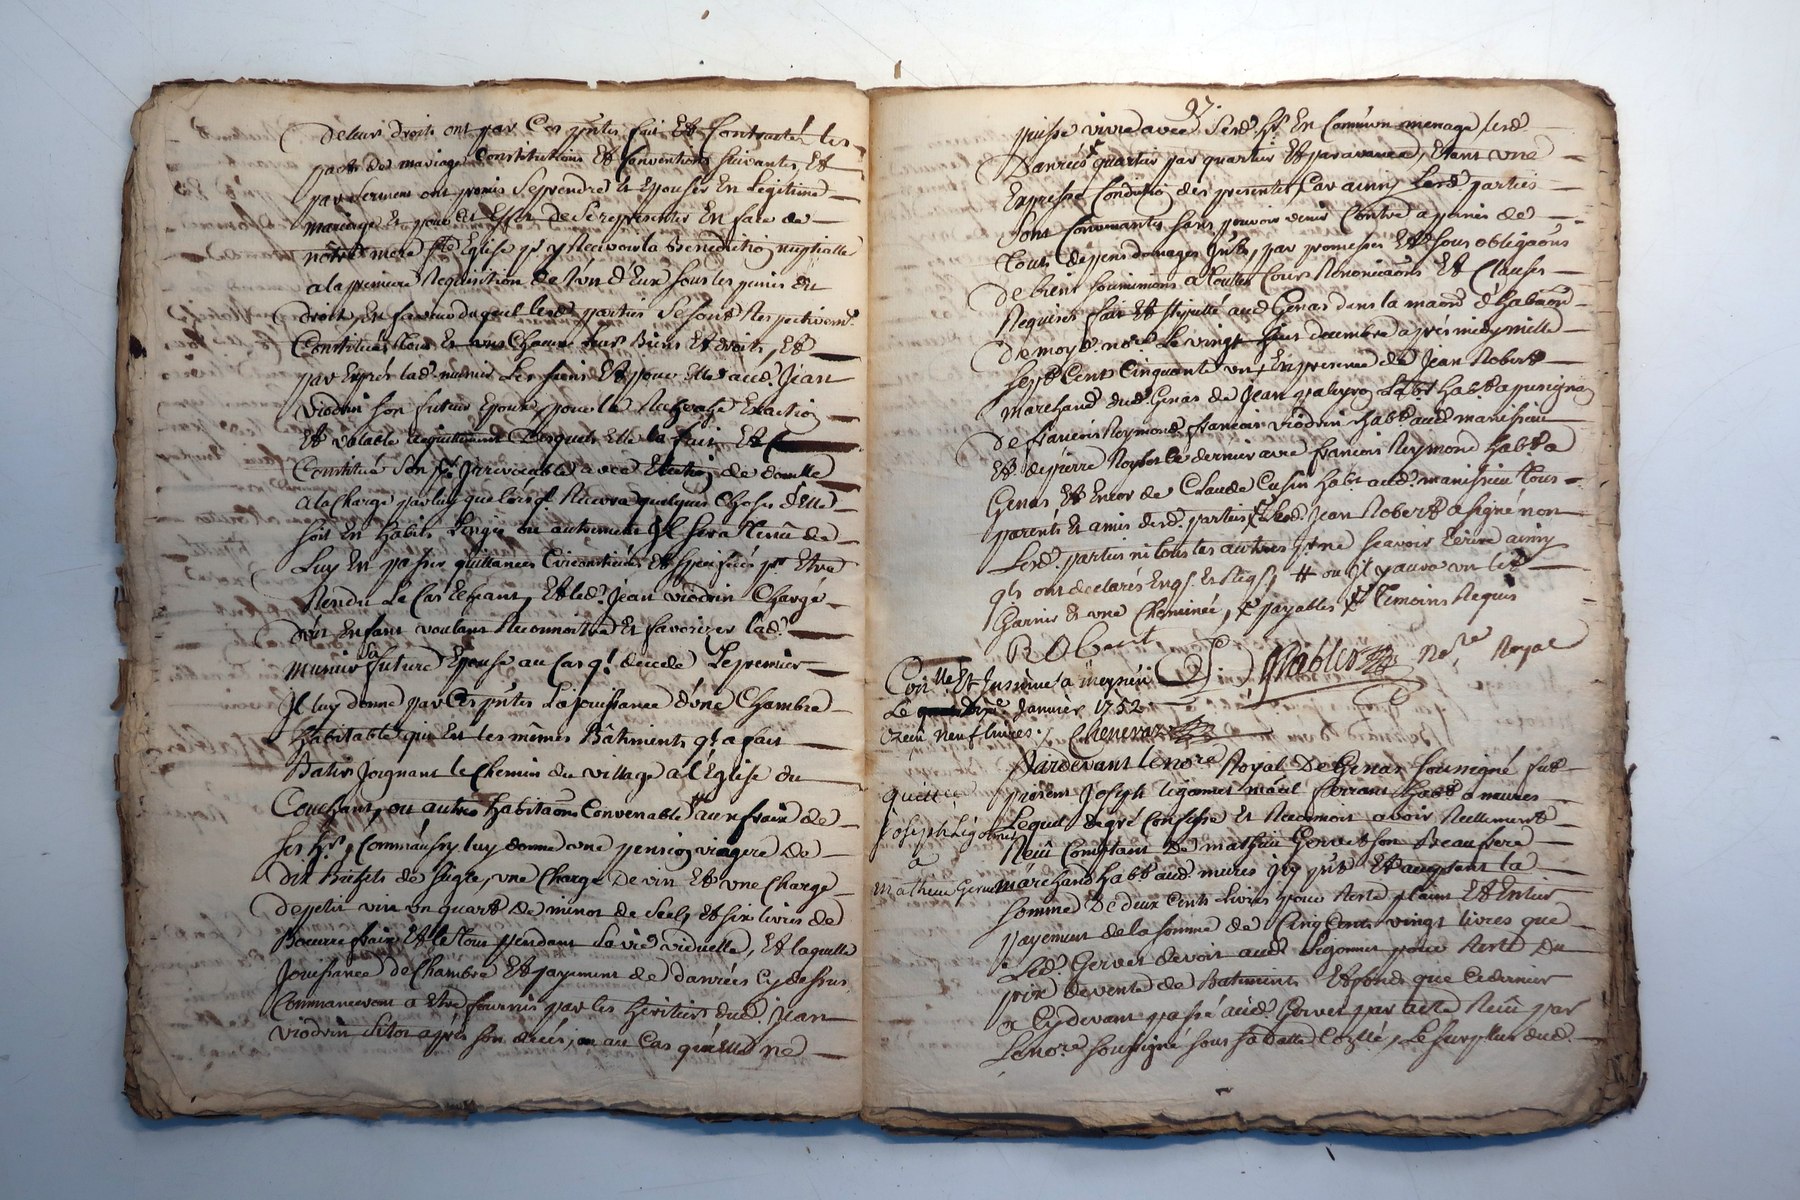 deleur droits ont par Ces pntes fait Et Contracté les
pacts de mariage Constitutions Et Conventions suivantes, Et
par serment ont promis Se prendre Et Epouser En Legitime
mariage Et pour Cet Effet de Se representer En face de
notre mere Ste Eglise pr y Recevoir la Benediction nuptialle
a la premiere Requisition de l'un d'Eux sous les peines du
droit, En faveur duquel lesd. parties Se sont Respectivemt.
Constitués tous Et uns Chacuns leurs Biens Et droits, Et
par Exprès lad. munier Les siens Et pour Elle aud. Jean
viodrin son futur Epoux, pour la Recherche Exaction
Et valable acquittement desquels Elle la fait Et
Constitué Son pr. Jrrevocable avec Election de domlle
a la Charge par luy que lorsql. Recevra quelques Choses d'Elle
soit En habits Linges ou autrement Jl sera Tenû de
Luy En passer quittances Circonstenciées Et Speciffiés pr Etre
Rendu Le Cas Echeant, Et led. Jean viodrin Chargé
d'un Enfant voulant Reconnoitre Et favorizer lad.
munier sa future Epouse au Cas ql. decede Le premier
Jl luy donne par Ces pntes La jouissance d'une Chambre
habitable qui Est les mêmes Bâtiments ql. a fait
Batir Joignant le Chemin du village a l'Eglise du
Couchant, ou autres habitaons Convenable aux fraix de
ses hrs, Comm'aussy luy donne une pension viagere de
dix Bichets de Sigle, une Charge De vin Et une Charge
de petit vin un quart de minot de Seel, Et six livres de
Beurre frais Et le tous pendant La vie viduelle, Et laquelle
Jouissance de Chambre Et payement de danrées Cy dessus
Commanceront a Etre fournis par les heritiers dud. Jean
viodrin Sitot après son decés, ou au Cas qu'elle ne
97.
puisse vivre avec Sesd. hrs. En Commun menage lesd.
Danrées quartier par quartier Et par avance, Etant une
Expresse Condition des presentes Car ainsy Lesd. parties
Sont Convenantes sans pouvoir venir Contre a peines de
Touts depens domages Jnts, par promesses Et sous obligaons
De biens soumissions a toutes Cours Renonciaons Et Clauses
Requises fait Et stipullé aud. Genas dans la maison d'habiaon
De moyd. nore. Le vingt huit decembre après midy mille
Sept Cent Cinquante un, En presence de Jean Robert
marchand dud. Genas de Jean valeyron Labr habt a pusignan
De francois Reymond, francois viodrin habt. aud. manissieu
Et de pierre Le dernier avec francois Reymond habts. a
Genas, Et Encor de Claude Cusin habt. aud. manissieu tous
parents Et amis desd. parties, Et led. Jean Robert a signé non
Lesd. parties ni tous les autres pr ne scavoir Ecrire ainsy
qls. ont declarés Enqs. Et Reqs., # ou Jl y aura un lit
Garnis Et une Cheminée, payables temoins Requis
Robert nore. Royal
Conlle. Et Jnsinué a meyzieu
Le Janvier 1752
Receu neuf livres. Cheneraz
Pardevant le nore. Royal De Genas soussigné fut
quittce present Joseph ligonnet mâal ferrant habt. a mures
Joseph Ligonnet Lequel degré Confesse Et Reconnoit avoir Reellement
a Receû Comptant De mathieu Gervet son Beaufrere
mathieu Gervet marchand habt. aud. mures Jcy pnt. Et acceptant la
Somme De deux Cents livres pour Reste plain Et Entier
payement de la somme de Cinq Cent vingt livres que
Led. Gervet devoit aud. Ligonnet pour Reste du
prix de vente de Batiments Et fonds que Ce dernier
a Cy devant passé aud. Gervet par acte Receû par
Le nore. soussigné sous sa datte Coellé, Le surplus dud.